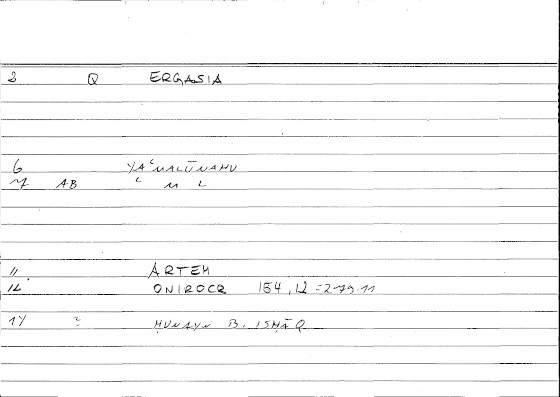 2 Q ERGASIA
6 YAʿMALŪNAHU
7 AB ʿ M L
11 ARTEM
12 ONIROCR 164,12 = 279.11
14 ? ḤUNAYN B. ISḤĀQ